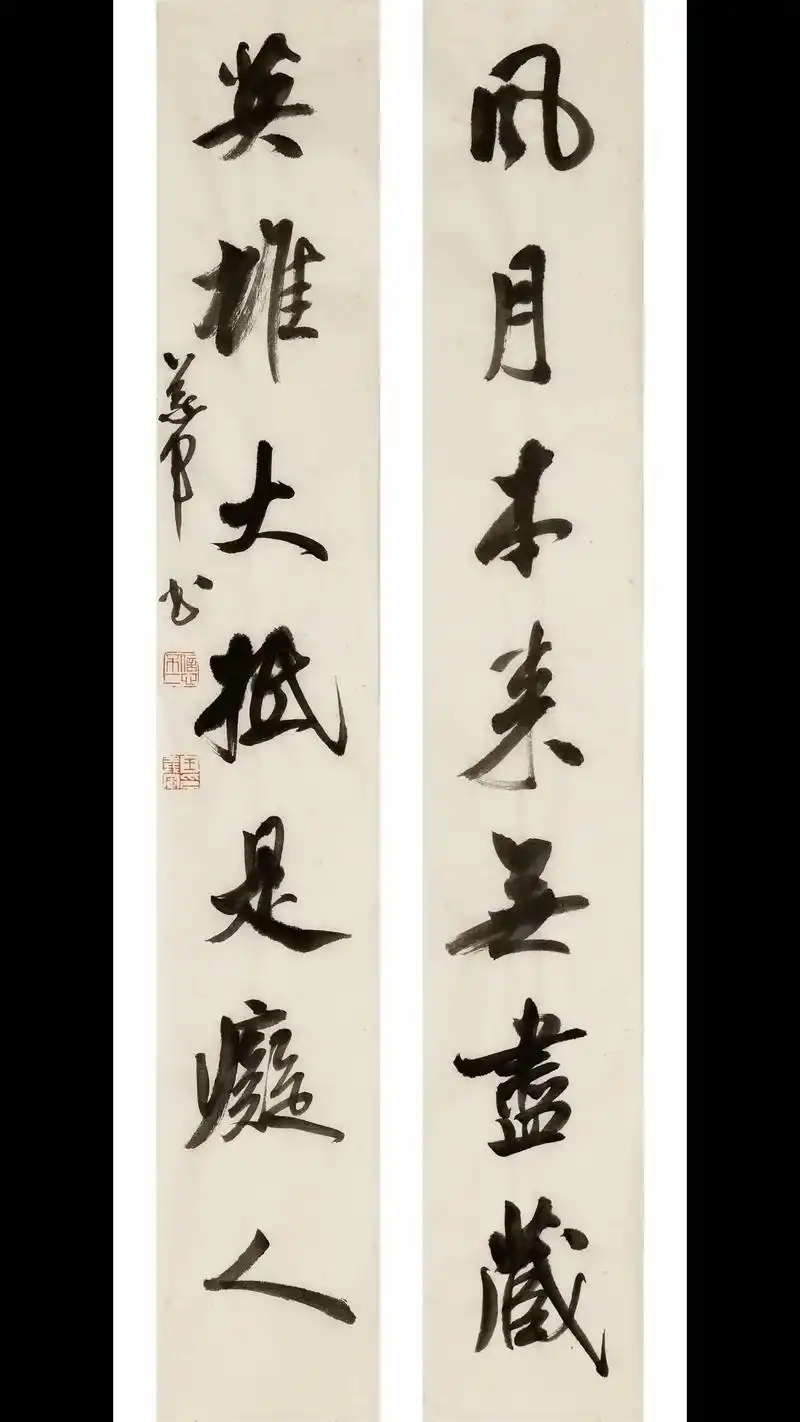 風月本來無盡藏
英雄大抵是癡人
书